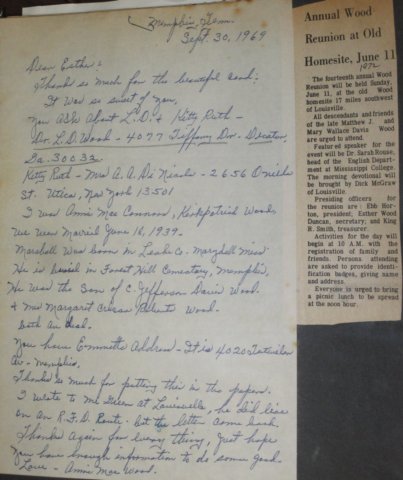 Memphis, Tenn.
Sept. 30, 1969
Dear Esther:
Thanks so much for the beautiful card.
It was so sweet of you,
You ask about L.D. & Kitty Ruth -
Dr. L.D. Wood - 4077 Tiffany Dr. - Decatur,
Ga. 30032.
Kitty Ruth - Mrs A. A. - 2656 Oneida
St. Utica, New York 13501
I was Annie Mae Connor, Kirkpatrick Wood,
We were married June 16, 1939.
Marshall was born in Leake Co. Miss.
He is buried in Forest Hill Cemetery, Memphis,
He was the son of C. Jefferson Davis Wood.
& Mrs Margaret Wood.
Both are dead.
You have Emmetts Address - It is 4020
Av - Memphis.
Thanks so much for putting this in the papers.
I wrote to Mr Green at Louisville, he did live
on an R.F.D. Route. but the letter came back.
Thanks again for every thing, Just hope
you have enough information to do some good.
Love - Annie Mae Wood.
Annual Wood
Reunion at Old
Homesite, June 11
1972
The fourteenth annual Wood
Reunion will be held Sunday,
June 11, at the old Wood
homesite 17 miles southwest
of Louisville.
All descendants and friends
of the late Matthew J. and
Mary Wallace Davis Wood
are urged to attend.
Featured speaker for the
event will be Dr. Sarah Rouse,
head of the English Depart-
ment at Mississippi College.
The morning devotional will
be brought by Dick McGraw
of Louisville.
Presiding officers for
the reunion are: Ebb Hor-
ton, president; Esther Wood
Duncan, secretary; and King
R. Smith, treasurer.
Activities for the day will
begin at 10 A.M. with the
registration of family and
friends. Persons attending
are asked to provide identi-
fication badges, giving name
and address.
Everyone is urged to bring
a picnic lunch to be spread
at the noon hour.